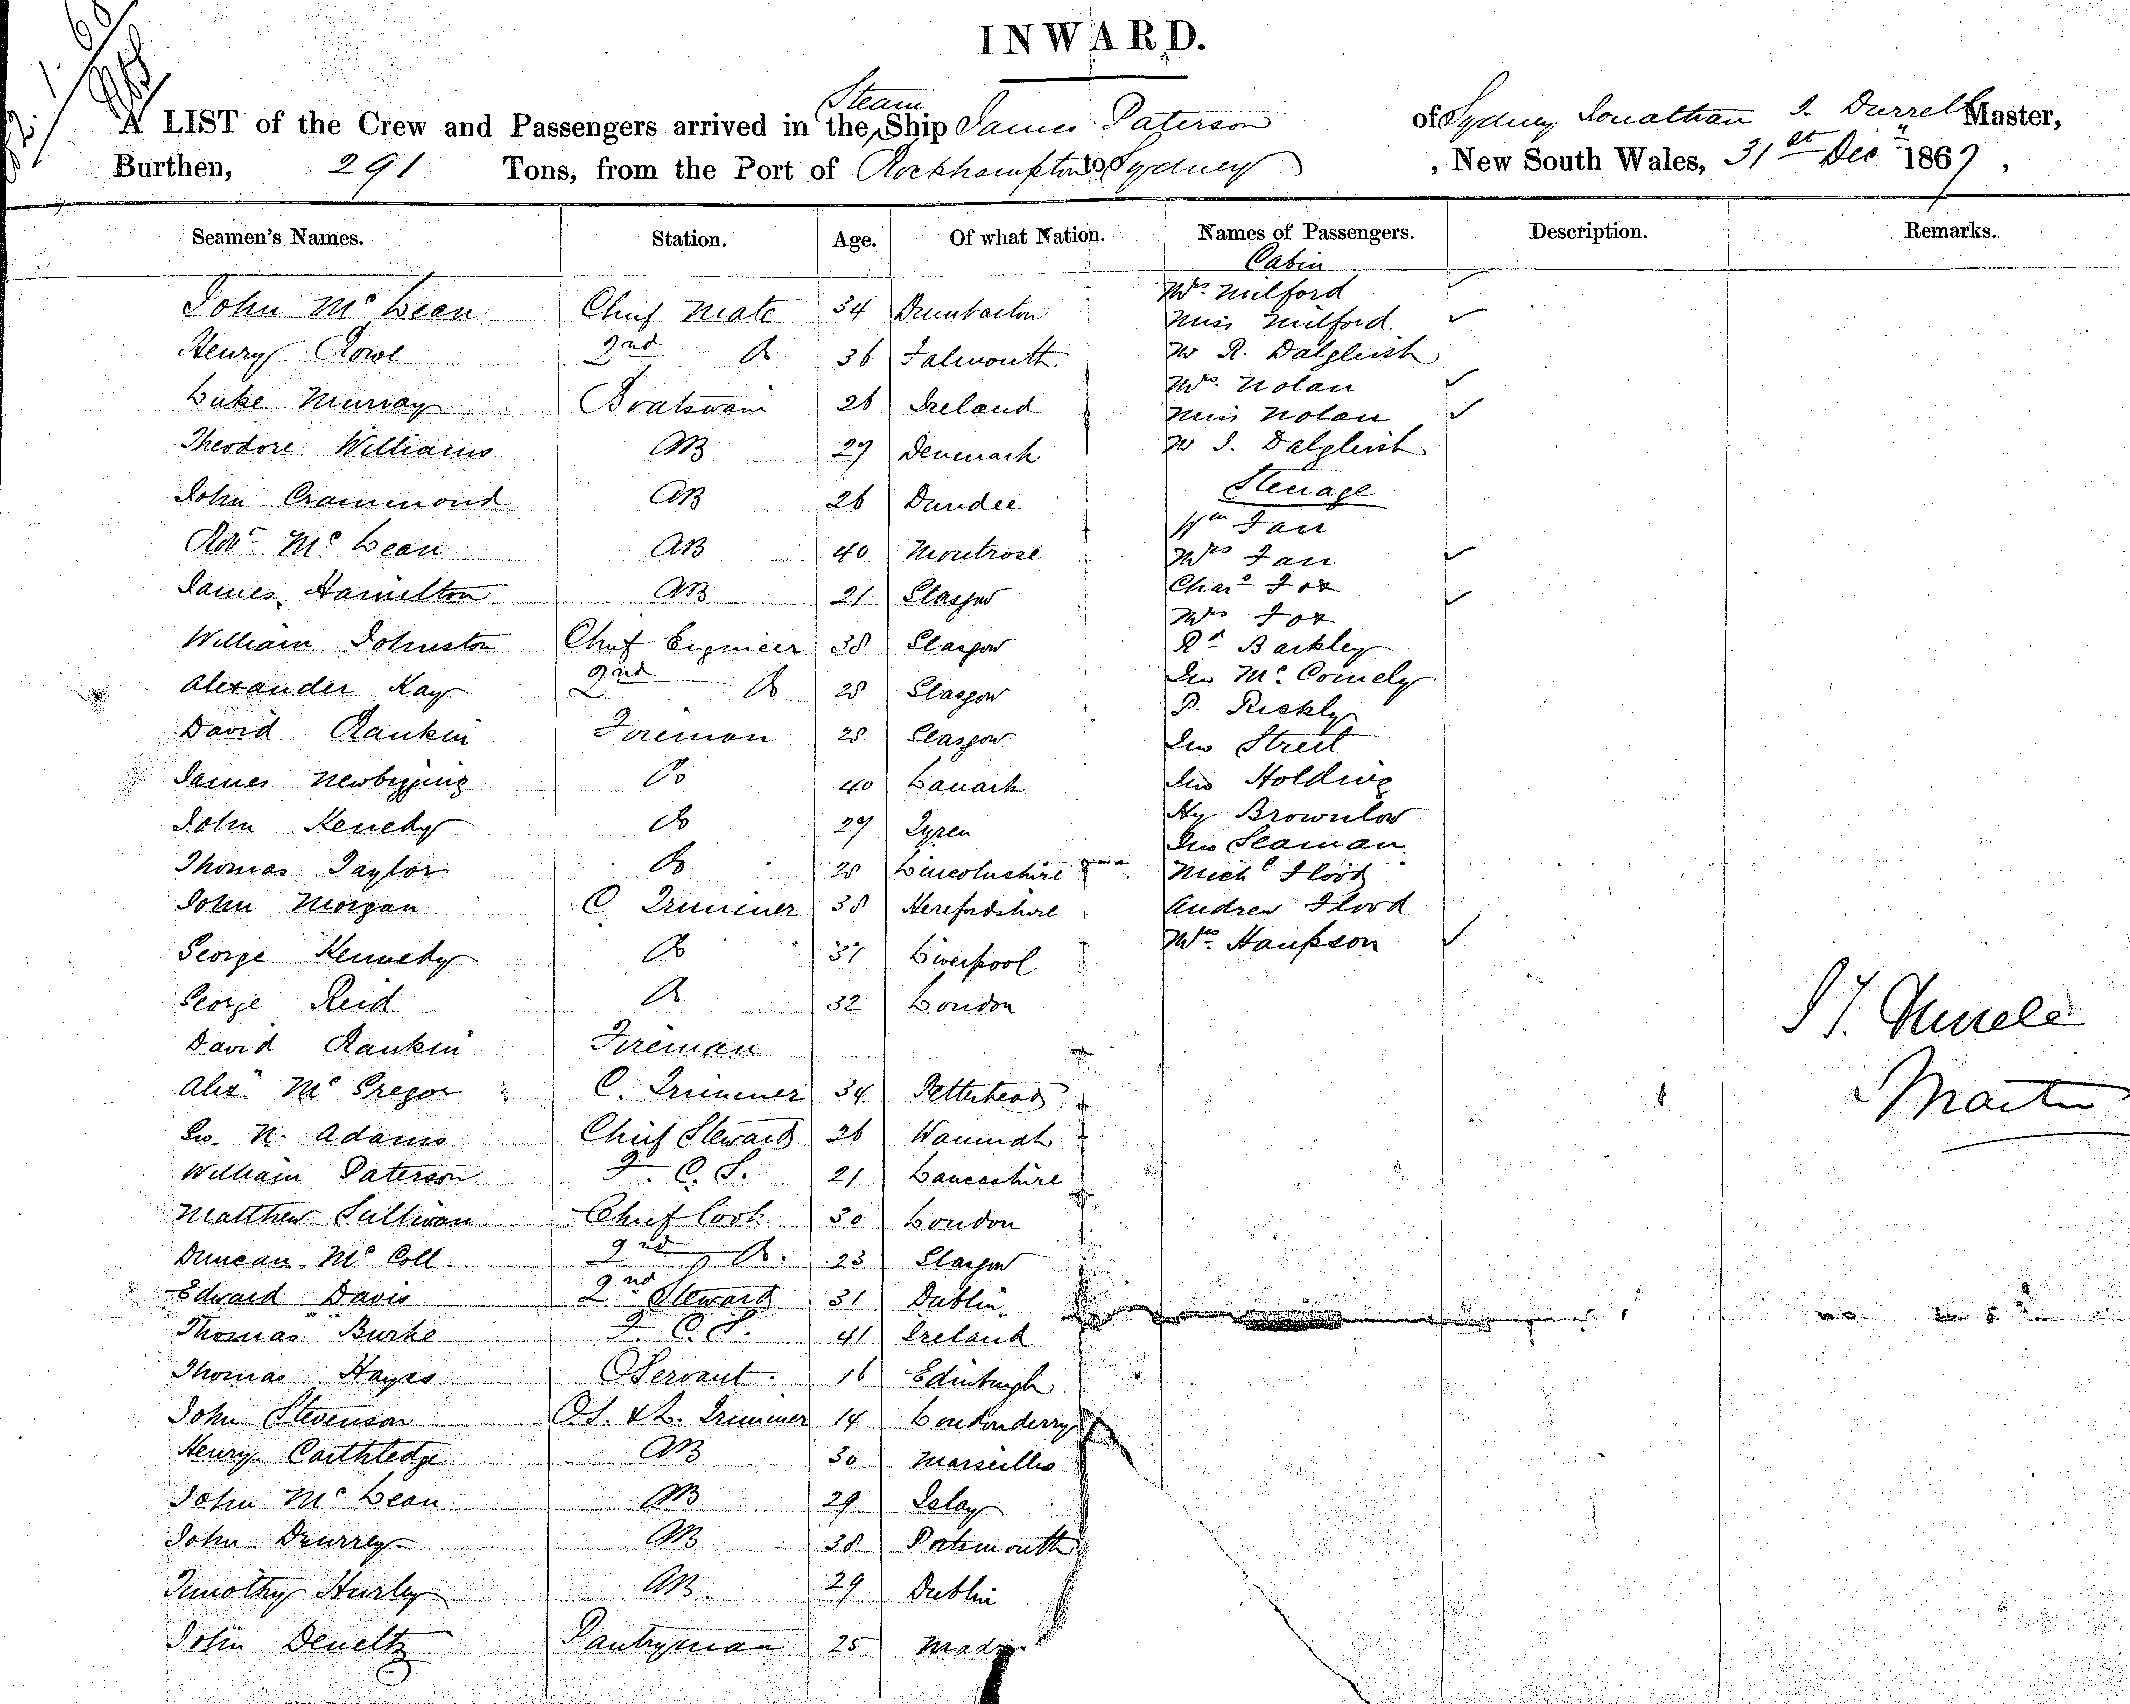 INWARD.
Steam
A LIST of the Crew and Passengers arrived in the Ship James Paterson of Sydney Jonathan T. Durrell Master,
Burthen, 291 Tons, from the Port of Rockhampton to Sydney, New South Wales, 31st Dec 1867,
Seamen's Names. Station. Age. Of what Nation. Names of Passengers. Description. Remarks.
Cabin
John McLean Chief Mate 34 Dumbarton
Henry Rowe 2nd Do 36 Falmouth
Luke Murray Boatswain 26 Ireland
Theodore Williams AB 27 Denmark
John Crammond AB 26 Dundee
Robt McLean AB 40 Montrose
James Hamilton AB 21 Glasgow
William Johnston Chief Engineer 38 Glasgow
Alexander Kay 2nd Do 28 Glasgow
David Rankin Fireman 28 Glasgow
James Newbigging Do 40 Lanark
John Kenedy Do 27
Thomas Taylor Do 28 Lincolnshire
John Morgan C Trimmer 38 Herefordshire
George Kennedy Do 37 Liverpool
George Reid Do 32 London
David Rankin Fireman
Alexr McGregor C. Trimmer 34 Petterhead
N. Adams Chief Steward 26
William Paterson F. C. S. 21 Lancashire
Matthew Sullivan Chief Cook 30 London
Duncan McColl 2nd Do. 23 Glasgow
Edward Davis 2nd Steward 31 Dublin
Thomas Burke F. C. S. 41 Ireland
Thomas Hayes Servant 16 Edinburgh
John Stevenson O.S. & L. Trimmer 14 Londonderry
Henry Carthledge AB 30 Marseilles
John McLean AB 29 Islay
John Drurrey AB 38 Portsmouth
Timothy Hurley AB 29 Dublin
John Deneltz Pantryman 25
Mrs Milford
Miss Milford
Mr R. Dalgleish
Mrs Nolan
Miss Nolan
Mr J. Dalgleish
Steerage
Wm Farr
Mrs Farr
Chas Fox
Mrs Fox
Rd Barkley
Jno McComely
P. Rickly
Jno Street
Jno Holding
Hy Brownlow
Jno Seaman
Michl Flood
Andrew Flood
Mrs Haupson
J T. Durrell
Master